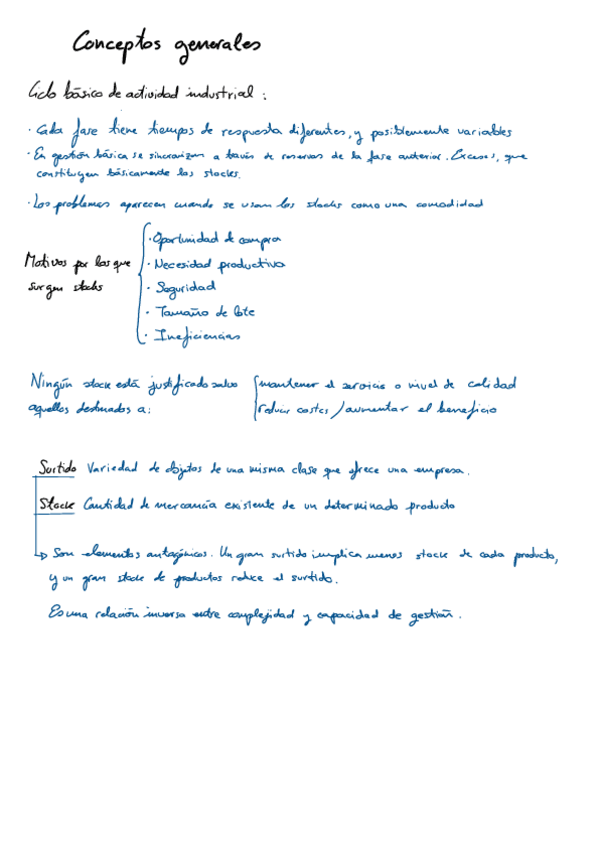 Conceptos generales
Ciclo básico de actividad industrial :
· Cada fase tiene tiempos de respuesta diferentes, y posiblemente variables
· En gestión básica se sincronizan a través de reservas de la fase anterior. Excesos, que
constituyen básicamente los stocks.
· Los problemas aparecen cuando se usan los stocks como una comodidad
Motivos por los que
surgen stocks
· Oportunidad de compra
· Necesidad productiva
· Seguridad
· Tamaño de lote
· Ineficiencias
Ningún stock está justificado salvo
aquellos destinados a:
mantener el servicio o nivel de calidad
reducir costes / aumentar el beneficio
Surtido Variedad de objetos de una misma clase que ofrece una empresa.
Stock Cantidad de mercancía existente de un determinado producto
→ Son elementos antagónicos. Un gran surtido implica menos stock de cada producto,
y un gran stock de productos reduce el surtido.
Es una relación inversa entre complejidad y capacidad de gestión.